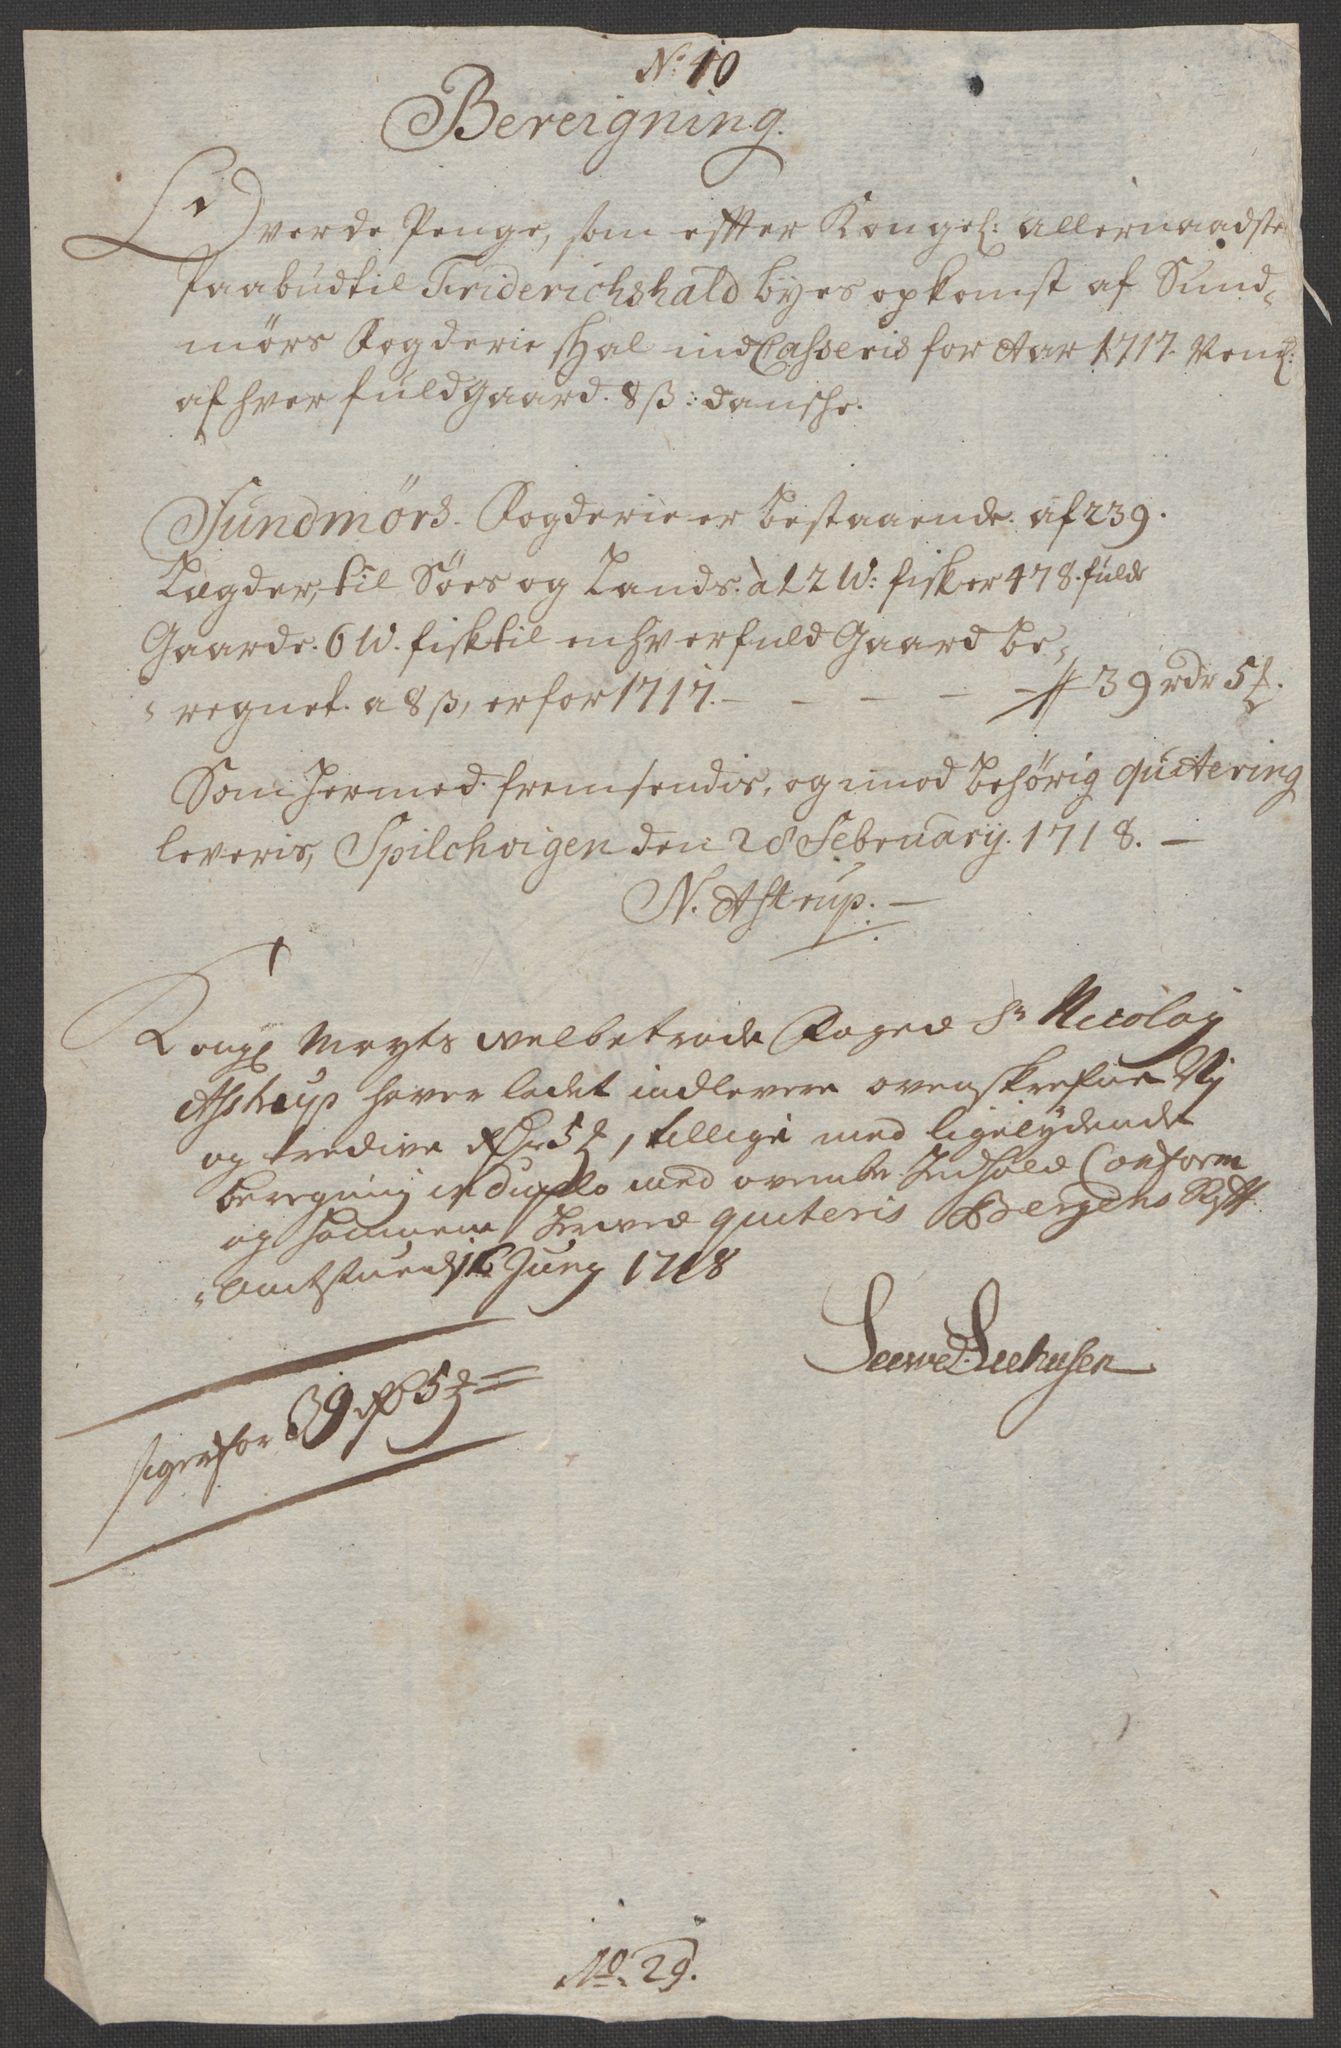 No: 10
Bereigning.
Over de Penge, som effter Kongel: allernaadste
Paabud til Friderichshald byes opkomst af Sund-
mørs Fogderie skal indCasseris for Aar 1717. Neml:
af hver fuld gaard. 8 ß: danske.
Sundmørs. Fogderie er bestaaende. af 239.
Lægder, til Søes og Lands. à 12 W: fisk er 478. fulde
Gaarde. 6 W. fisk til en hver fuld Gaard be-
regnet. a 8 ß, er for 1717. - - - - - 39 rdr 5
Som hermed fremsendis, og imod behørig quitering
leveris, Spilchvigen den 28 February. 1718. -
N. Astrup. -
Kongl Mayts welbetrode Foged Sr Nicolay
Astrup haver ladet indlevere ovenskrefne Nj
og tredive Rdr 5 , tillige med ligelydende
beregning in duplo med ovenbe Indhold Conform
og hannem herved quiteris Bergens Stifft
Amtstue d 16 Juny 1718
Seehusen
siger for 39 Rd 5
No. 29.